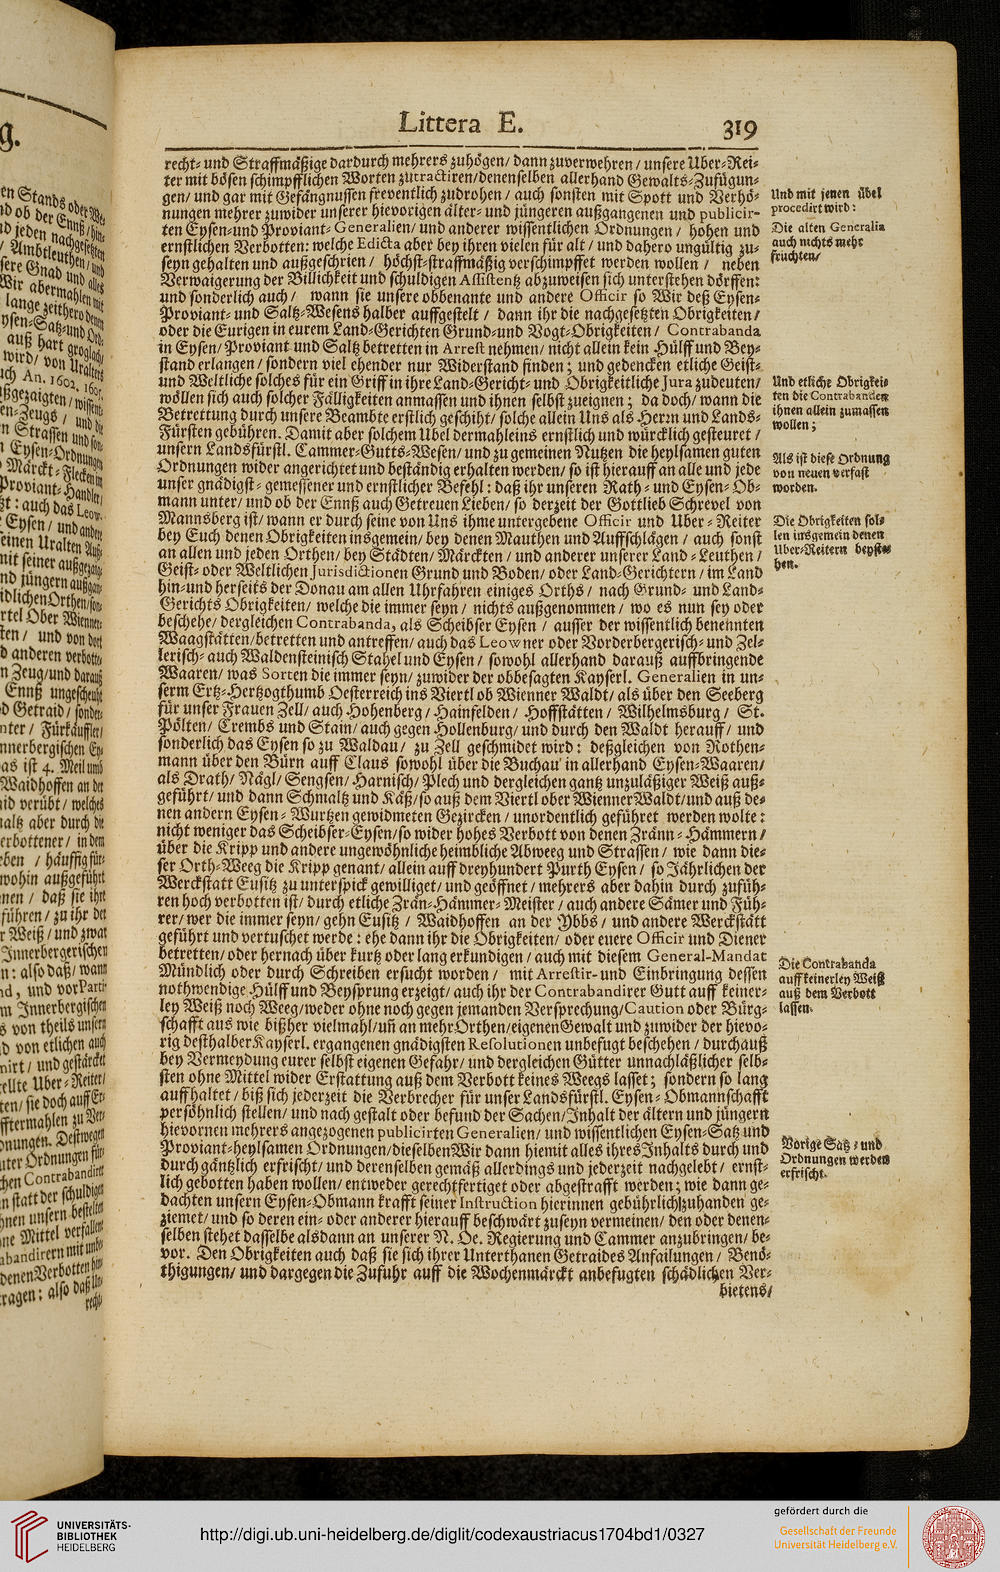 Littera E.
319
recht- und Straffmäßige dardurch mehrers zuhögen / dann zuverwehren / unsere Uber-Rei-
ter mit bösen schimpfflichen Worten zutractiren / denenselben allerhand Gewalts-Zufügun-
gen / und gar mit Gefängnussen freventlich zudrohen / auch sonsten mit Spott und Verhö-
nungen mehrer zuwider unserer hievorigen älter- und jüngeren außgangenen und publicir-
ten Eysen- und Proviant-Generalien / und anderer wissentlichen Ordnungen / hohen und
ernstlichen Verbotten: welche Edicta aber bey ihren vielen für alt / und dahero ungültig zu-
seyn gehalten und außgeschrien / höchst-straffmäßig verschimpffet werden wollen / neben
Verwaigerung der Billichkeit und schuldigen Assistentz abzuweisen sich unterstehen dörffen:
und sonderlich auch / wann sie unsere obbenante und andere Officir so Wir deß Eysen-
Proviant- und Saltz-Wesens halber auffgestelt / dann ihr die nachgesetzten Obrigkeiten /
oder die Eurigen in eurem Land-Gerichten Grund- und Vogt-Obrigkeiten / Contrabanda
in Eysen / Proviant und Saltz betretten in Arrest nehmen / nicht allein kein Hülff und Bey-
stand erlangen / sondern viel ehender nur Widerstand finden; und gedencken etliche Geist-
und Weltliche solches für ein Griff in ihre Land-Gericht- und Obrigkeitliche Jura zudeuten /
wöllen sich auch solcher Fälligkeiten anmassen und ihnen selbst zueignen; da doch / wann die
Betrettung durch unsere Beambte erstlich geschiht / solche allein Uns als Herrn und Lands-
Fürsten gebühren. Damit aber solchem Ubel dermahleins ernstlich und würcklich gesteuret /
unsern Landsfürstl. Cammer-Gutts-Wesen / und zu gemeinen Nutzen die heylsamen guten
Ordnungen wider angerichtet und beständig erhalten werden / so ist hierauff an alle und jede
unser gnädigst-gemessener und ernstlicher Befehl: daß ihr unseren Rath- und Eysen-Ob-
mann unter / und ob der Ennß auch Getreuen Lieben / so derzeit der Gottlieb Schrevel von
Mannsberg ist / wann er durch seine von Uns ihme untergebene Officir und Uber-Reiter
bey Euch denen Obrigkeiten insgemein / bey denen Mauthen und Auffschlägen / auch sonst
an allen und jeden Orthen / bey Städten / Märckten / und anderer unserer Land-Leuthen /
Geist- oder Weltlichen Jurisdictionen Grund und Boden / oder Land-Gerichtern / im Land
hin- und herseits der Donau am allen Uhrfahren einiges Orths / nach Grund- und Land-
Gerichts Obrigkeiten / welche die immer seyn / nichts außgenommen / wo es nun sey oder
beschehe / dergleichen Contrabanda, als Scheibser Eysen / ausser der wissentlich benennten
Waagstätten / betretten und antreffen / auch das Leowner oder Vorderbergerisch- und Zel-
lerisch- auch Waldensteinisch Stahel und Eysen / sowohl allerhand darauß auffbringende
Waaren / was Sorten die immer seyn / zuwider der obbesagten Kayserl. Generalien in un-
serm Ertz-Hertzogthumb Oesterreich ins Viertl ob Wienner Waldt / als über den Seeberg
für unser Frauen Zell / auch Hohenberg / Hainfelden / Hoffstätten / Wilhelmsburg / St.
Pölten / Crembs und Stain / auch gegen Hollenburg / und durch den Waldt herauff / und
sonderlich das Eysen so zu Waldau / zu Zell geschmidet wird: deßgleichen von Rothen-
mann über den Bürn auff Claus sowohl über die Buchau in allerhand Eysen-Waaren /
als Drath / Nägl / Sengsen / Harnisch / Plech und dergleichen gantz unzuläßiger Weiß auß-
geführt / und dann Schmaltz und Käß / so auß dem Viertl ober Wienner Waldt / und auß de-
nen andern Eysen-Wurtzen gewidmeten Gezircken / unordentlich geführet werden wolte:
nicht weniger das Scheibser-Eysen / so wider hohes Verbott von denen Zränn-Hämmern /
über die Kripp und andere ungewöhnliche heimbliche Abweeg und Strassen / wie dann die-
ser Orth-Weeg die Kripp genant / allein auff dreyhundert Purth Eysen / so Jährlichen der
Werckstatt Eusitz zu unterspick gewilliget / und geöffnet / mehrers aber dahin durch zufüh-
ren hoch verbotten ist / durch etliche Zrän-Hämmer-Meister / auch andere Sämer und Füh-
rer / wer die immer seyn / gehn Eusitz / Waidhoffen an der Ybbs / und andere Werckstätt
geführt und vertuschet werde: ehe dann ihr die Obrigkeiten / oder euere Officir und Diener
betretten / oder hernach über kurtz oder lang erkundigen / auch mit diesem General-Mandat
Mündlich oder durch Schreiben ersucht worden / mit Arrestir- und Einbringung dessen
nothwendige Hülff und Beysprung erzeigt / auch ihr der Contrabandirer Gutt auff keiner-
ley Weiß noch Weeg / weder ohne noch gegen jemanden Versprechung / Caution oder Bürg-
schafft aus wie bißher vielmahl / uñ an mehr Orthen / eigenen Gewalt und zuwider der hievo-
rig desthalber Kayserl. ergangenen gnädigsten Resolutionen unbefugt beschehen / durchauß
bey Vermeydung eurer selbst eigenen Gefahr / und dergleichen Gütter unnachläßlicher selb-
sten ohne Mittel wider Erstattung auß dem Verbott keines Weegs lasset; sondern so lang
auffhaltet / biß sich jederzeit die Verbrecher für unser Landsfürstl. Eysen-Obmannschafft
persöhnlich stellen / und nach gestalt oder befund der Sachen / Inhalt der ältern und jüngern
hievornen mehrers angezogenen publicirten Generalien / und wissentlichen Eysen-Satz und
Proviant-heylsamen Ordnungen / dieselben Wir dann hiemit alles ihres Inhalts durch und
durch gäntzlich erfrischt / und derenselben gemäß allerdings und jederzeit nachgelebt / ernst-
lich gebotten haben wollen / entweder gerechtfertiget oder abgestrafft werden; wie dann ge-
dachten unsern Eysen-Obmann krafft seiner Instruction hierinnen gebührlich zuhanden ge-
ziemet / und so deren ein- oder anderer hierauff beschwärt zuseyn vermeinen / den oder denen-
selben stehet dasselbe alsdann an unserer N. Oe. Regierung und Cammer anzubringen / be-
vor. Den Obrigkeiten auch daß sie sich ihrer Unterthanen Getraides Anfailungen / Benö-
thigungen / und dargegen die Zufuhr auff die Wochenmärckt anbefugten schädlichen Ver-
bietens /
Und mit jenen übel
procedirt wird:
Die alten Generalia
auch nichts mehr
fruchten /
Und etliche Obrigkei-
ten die Contrabanden
ihnen allein zumassen
wollen;
Als ist diese Ordnung
von neuen verfast
worden.
Die Obrigkeiten sol-
len insgemein denen
Uber-Reitern beyste-
hen.
Die Contrabanda
auff keinerley Weiß
auß dem Verbott
lassen.
Vorige Satz- und
Ordnungen werden
erfrischt.
UNIVERSITÄTS-
BIBLIOTHEK
HEIDELBERG
http://digi.ub.uni-heidelberg.de/diglit/codexaustriacus1704bd1/0327
gefördert durch die
Gesellschaft der Freunde
Universität Heidelberg e.V.